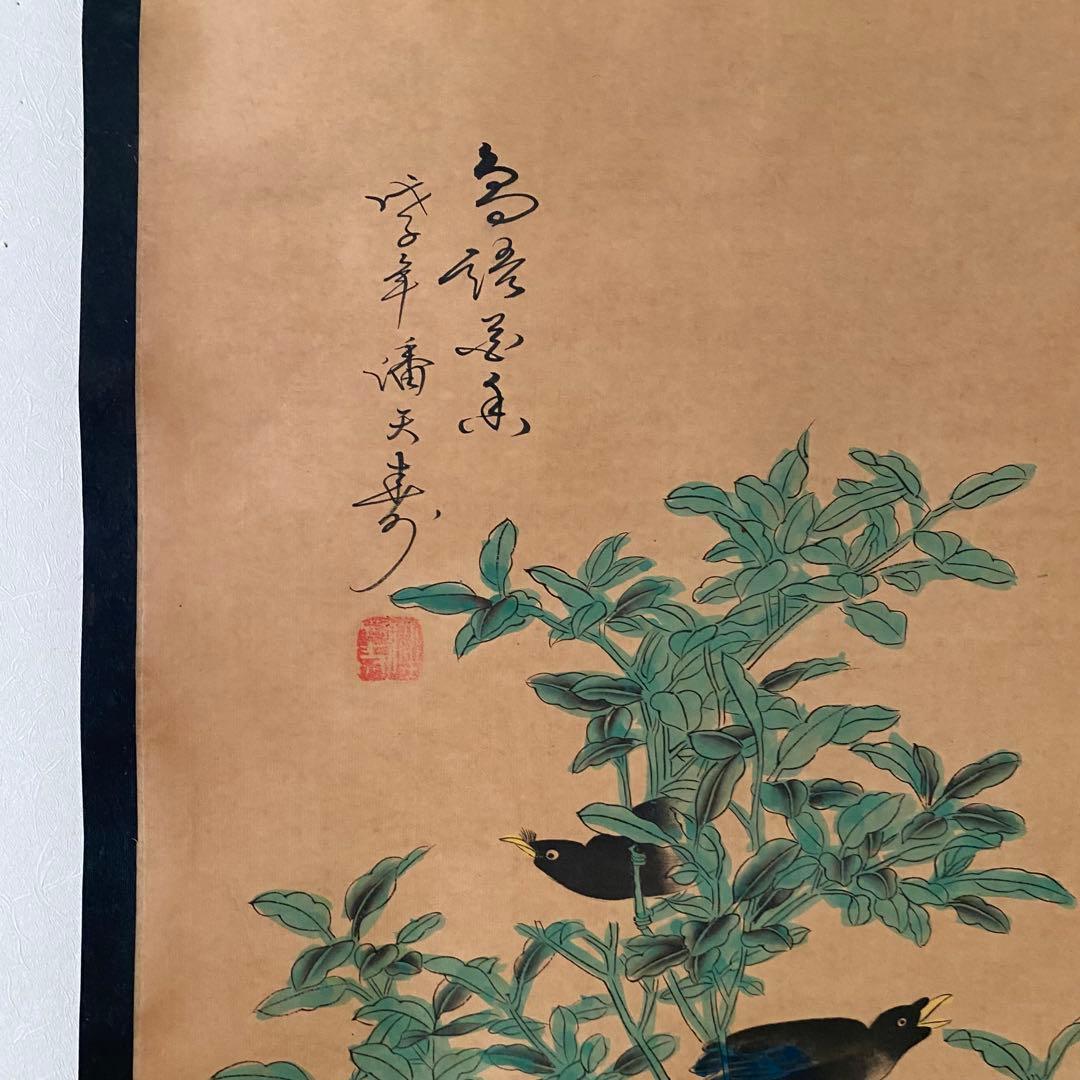 鳥語花香
戊子年潘天壽